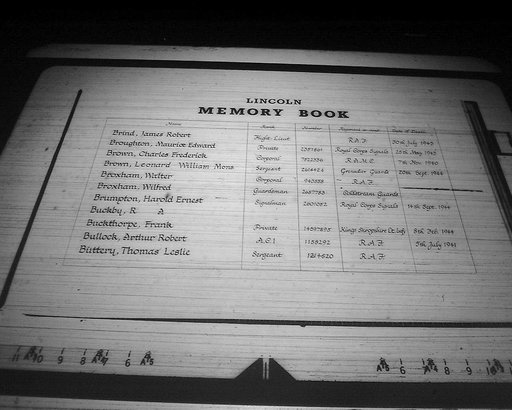 LINCOLN
MEMORY BOOK
Name Rank Number Regiment or Unit Date of Death
Brind, James Robert Flight Lieut R.A.F. 30th July 1943
Broughton, Maurice Edward Private Royal Corps Signals 25th May 1943
Brown, Charles Frederick Corporal R.A.M.C. 7th Nov 1940
Brown, Leonard William Mons Sergeant Grenadier Guards 20th Sept. 1944
Broxham, Walter Corporal R.A.F.
Broxham, Wilfred Guardsman Coldstream Guards
Brumpton, Harold Ernest Signalman Royal Corps Signals 14th Sept. 1944
Buckby, R. A
Buckthorpe, Frank Private Kings Shropshire Lt. Inf. 8th Feb. 1944
Bullock, Arthur Robert A.C.1 1158292 R.A.F. 5th July 1941
Buttery, Thomas Leslie Sergeant 1214620 R.A.F.